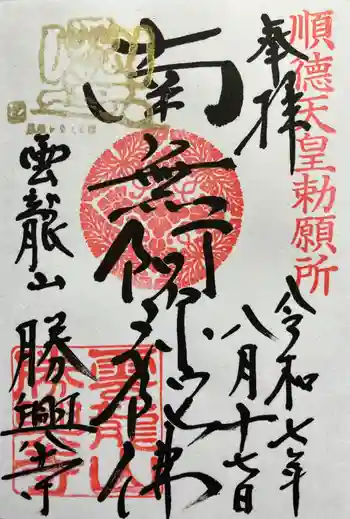 順徳天皇勅願所
奉拝
令和七年
八月十七日
南無阿弥陀佛
雲龍山
勝興寺
雲龍山
勝興寺